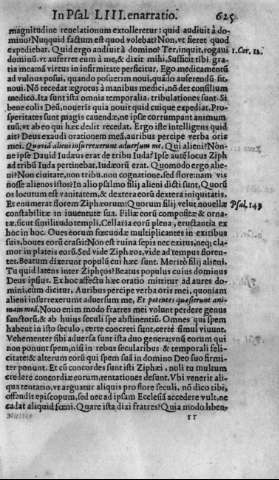 In Psal. LIII. enarratio. 625
magnitudine reuelationum extolleretur: quid audiuit à do-
mino? Nunquid factum est quod volebat? Non, vt fieret quod
expediebat. Quid ergo audiuit à domino? Ter, inquit, rogaui
dominũ, vt auferret eum à me, & dixit mihi, Sufficit tibi gra-
tia mea: nã virtus in infirmitate perficitur. Ego medicamentũ
ad vulnus posui, quando posuerim noui, quãdo auferendũ sit,
noui. Nõ recedat ægrotus à manibus medici, nõ det consilium
medico. Ista sunt ista omnia temporalia. tribulationes sunt? Si
bene colis Deũ, noueris quia nouit quid cuique expediat. Pros-
peritates sunt? magis cauendæ, ne ipsæ corrumpant animum
suũ, vt ab eo qui hæc dedit recedat. Ergo iste intelligens quid
ait? Deus exaudi orationem meã, auribus percipe verba oris
mei. Quoniã alieni insurrexerunt aduersum me. Qui alieni? Non-
ne ipse Dauid Iudæus erat de tribu Iuda? Ipse aũt locus Ziph
ad tribũ Iuda pertinebat, Iudæorũ erat. Quomodo ergo alie-
ni? Non ciuitate, non tribu, non cognatione, sed flore. nam vis
nosse alienos istos? In alio psalmo filij alieni dicti sunt, Quorũ
os locutum est vanitatem, & dextera eorũ dextera iniquitatis.
Et enumerat florem Ziphæorum: Quorum filij velut nouellæ Psal. 143
constabilitæ in iuuentute sua. Filiæ eorũ compositæ & orna-
tæ, sicut similitudo templi, Cellaria eorũ plena, eructantia ex
hoc in hoc. Oues eorum fœcundæ multiplicantur in exitibus
suis, boues eorũ crassi: Non est ruina sepis nec exitus, neque cla-
mor in plateis eorũ. Sed vide Ziphæos, vide ad tempus floren-
tes. Beatum dixerunt populũ cui hæc sunt. Meritò filij alieni.
Tu quid latens inter Ziphæos? Beatus populus cuius dominus
Deus ipsius. Ex hoc affectu hæc oratio mittitur ad aures do-
mini, cùm dicitur. Auribus percipe verba oris mei, quoniam
alieni insurrexerunt aduersum me, Et potentes quæsierunt ani-
mam meã. Nouo enim modo fratres mei volunt perdere genus
sanctorũ, & ab huius seculi spe abstinentiũ. Omnes qui spem
habent in isto seculo, certè concreti sunt, certè simul viuunt.
Vehementer sibi aduersa sunt ista duo genera: vnũ eorum qui
non ponunt spem, nisi in rebus secularibus & temporali feli-
citate: & alterum eorũ qui spem suã in domino Deo suo firmi-
ter ponunt. Et cũ concordes sunt isti Ziphæi, noli tu multum
credere concordiæ eorum, tentationes desunt. Vbi venerit ali-
qua tentatio, vt arguatur aliquis pro flore seculi, nõ dico tibi,
offendit episcopum, sed nec ad ipsam Ecclesiã accedere vult, ne
cadat aliquid fœni. Quare ista dixi fratres? Quia modò liben-
rr